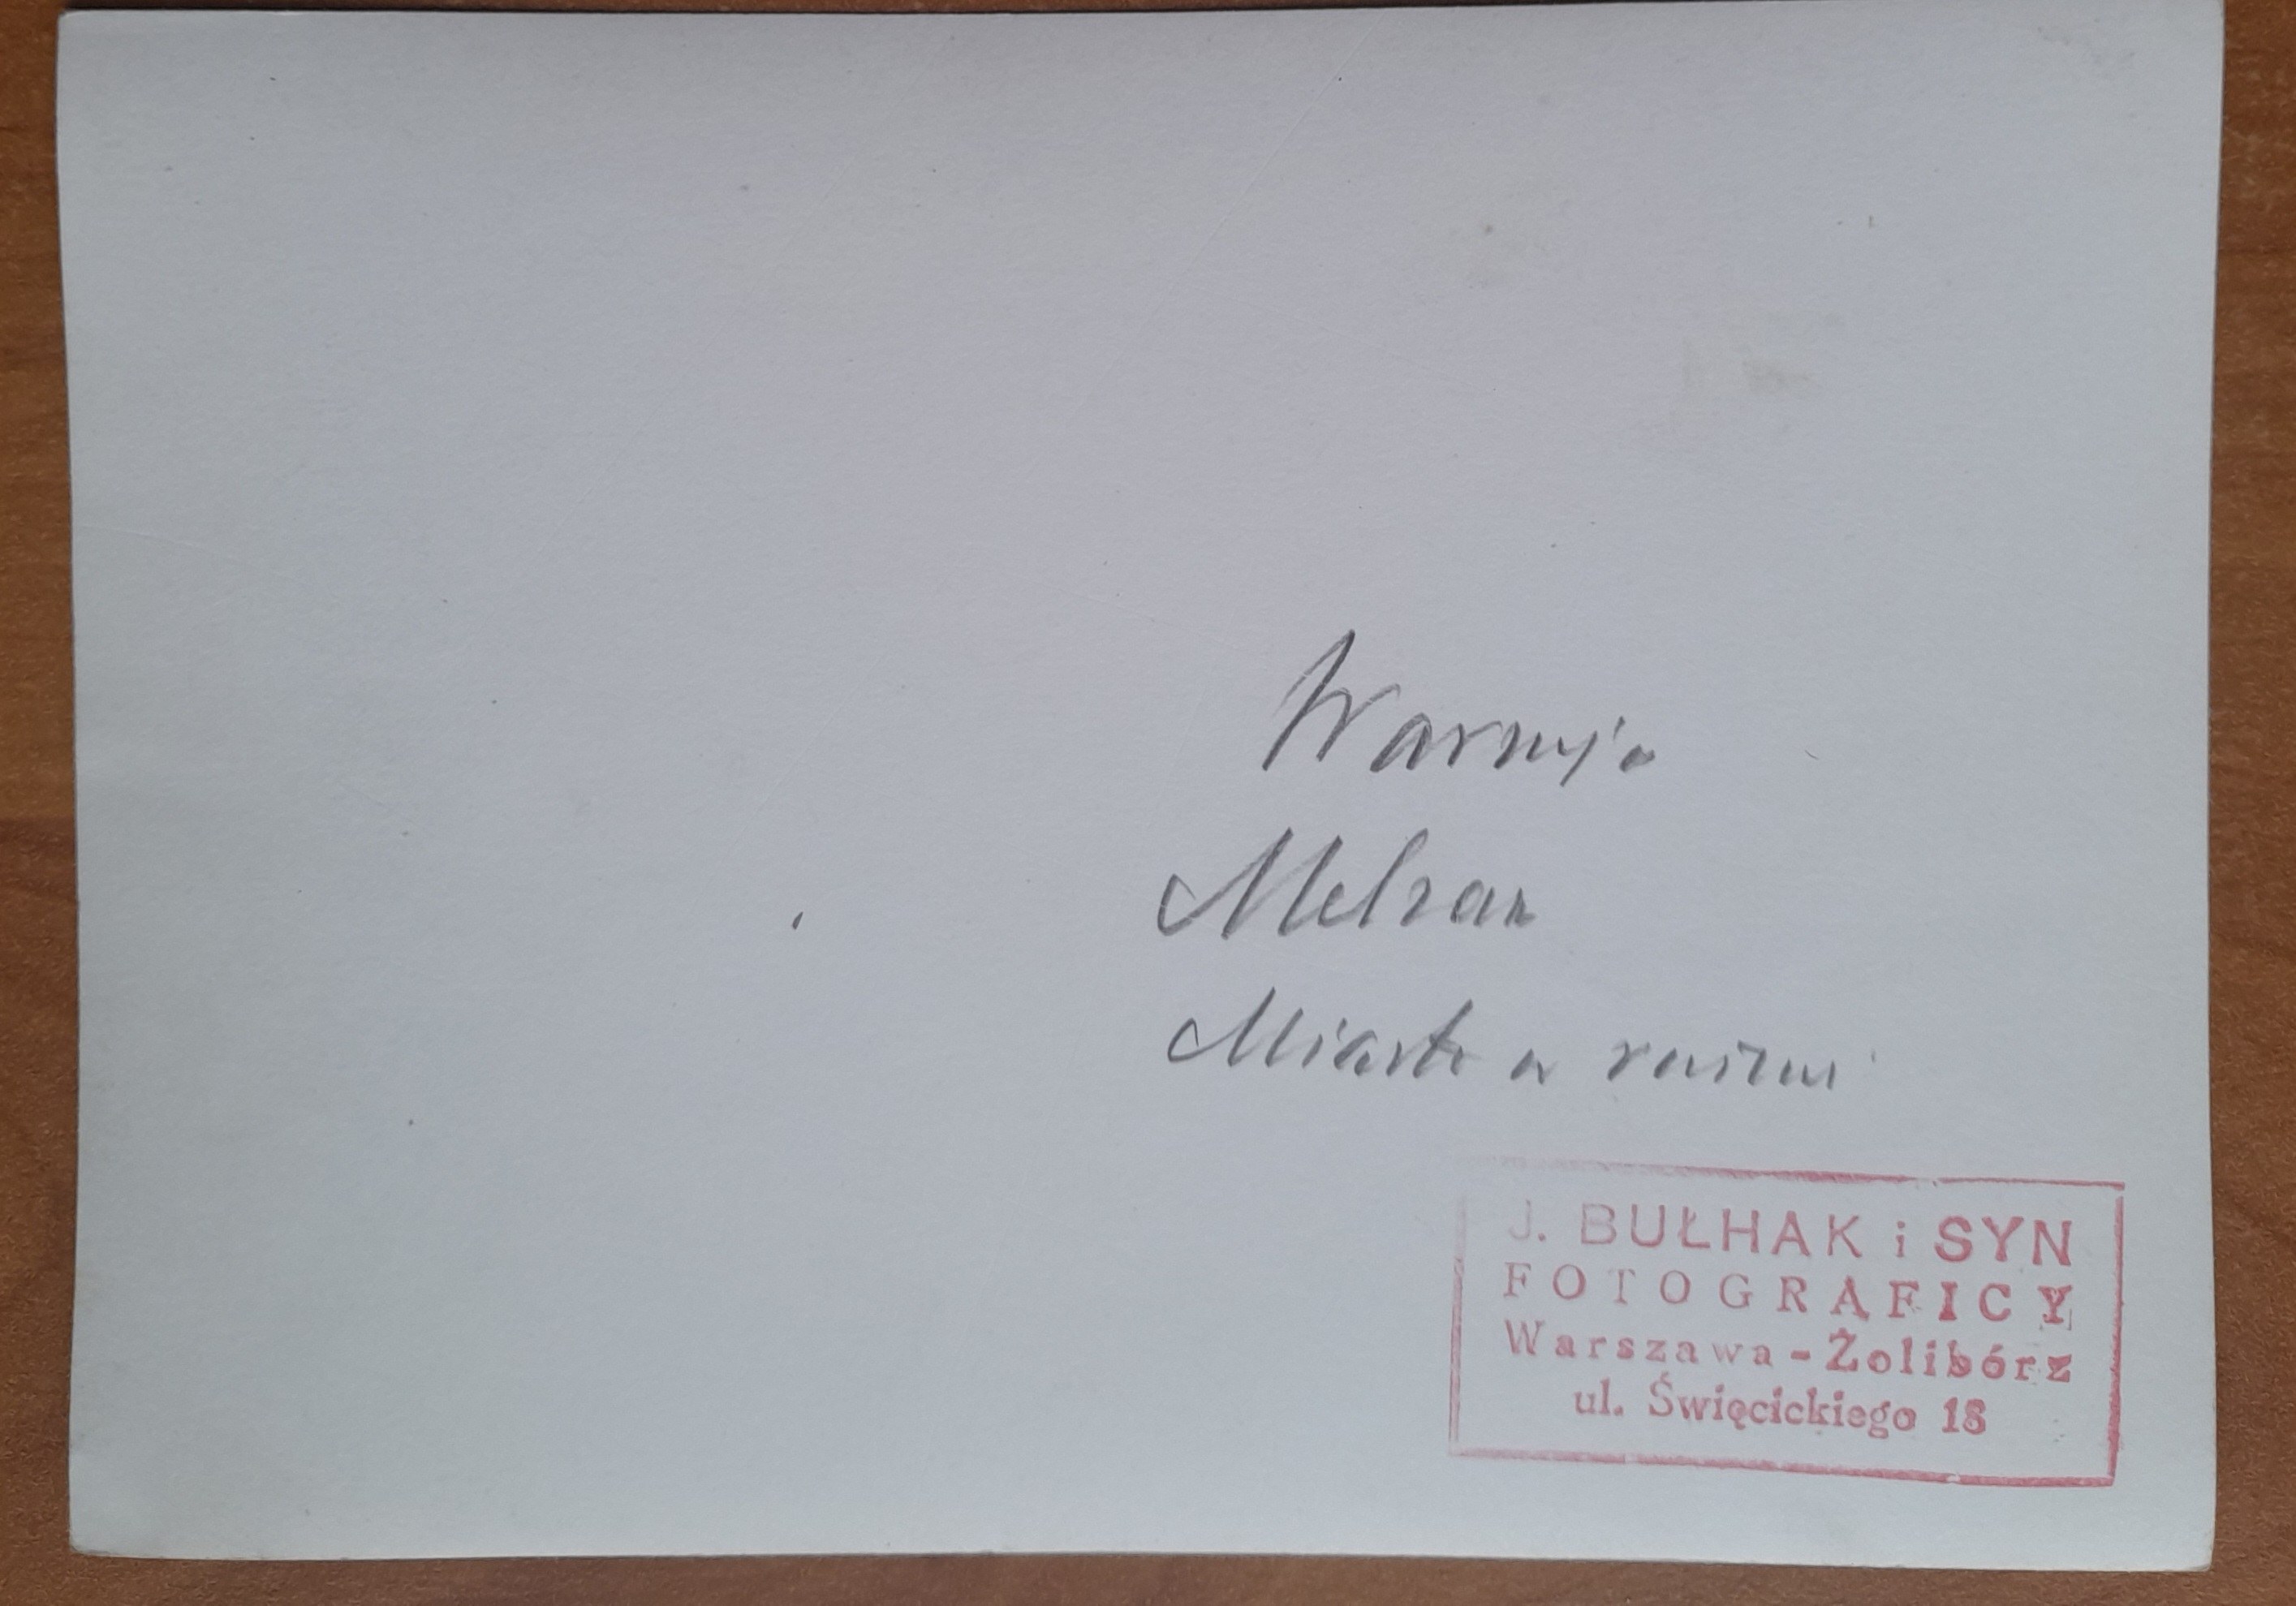 Warmja
Melzak
Miasto w
J. BUŁHAK i SYN
FOTOGRAFICY
Warszawa-Żolibórz
ul. Święcickiego 18